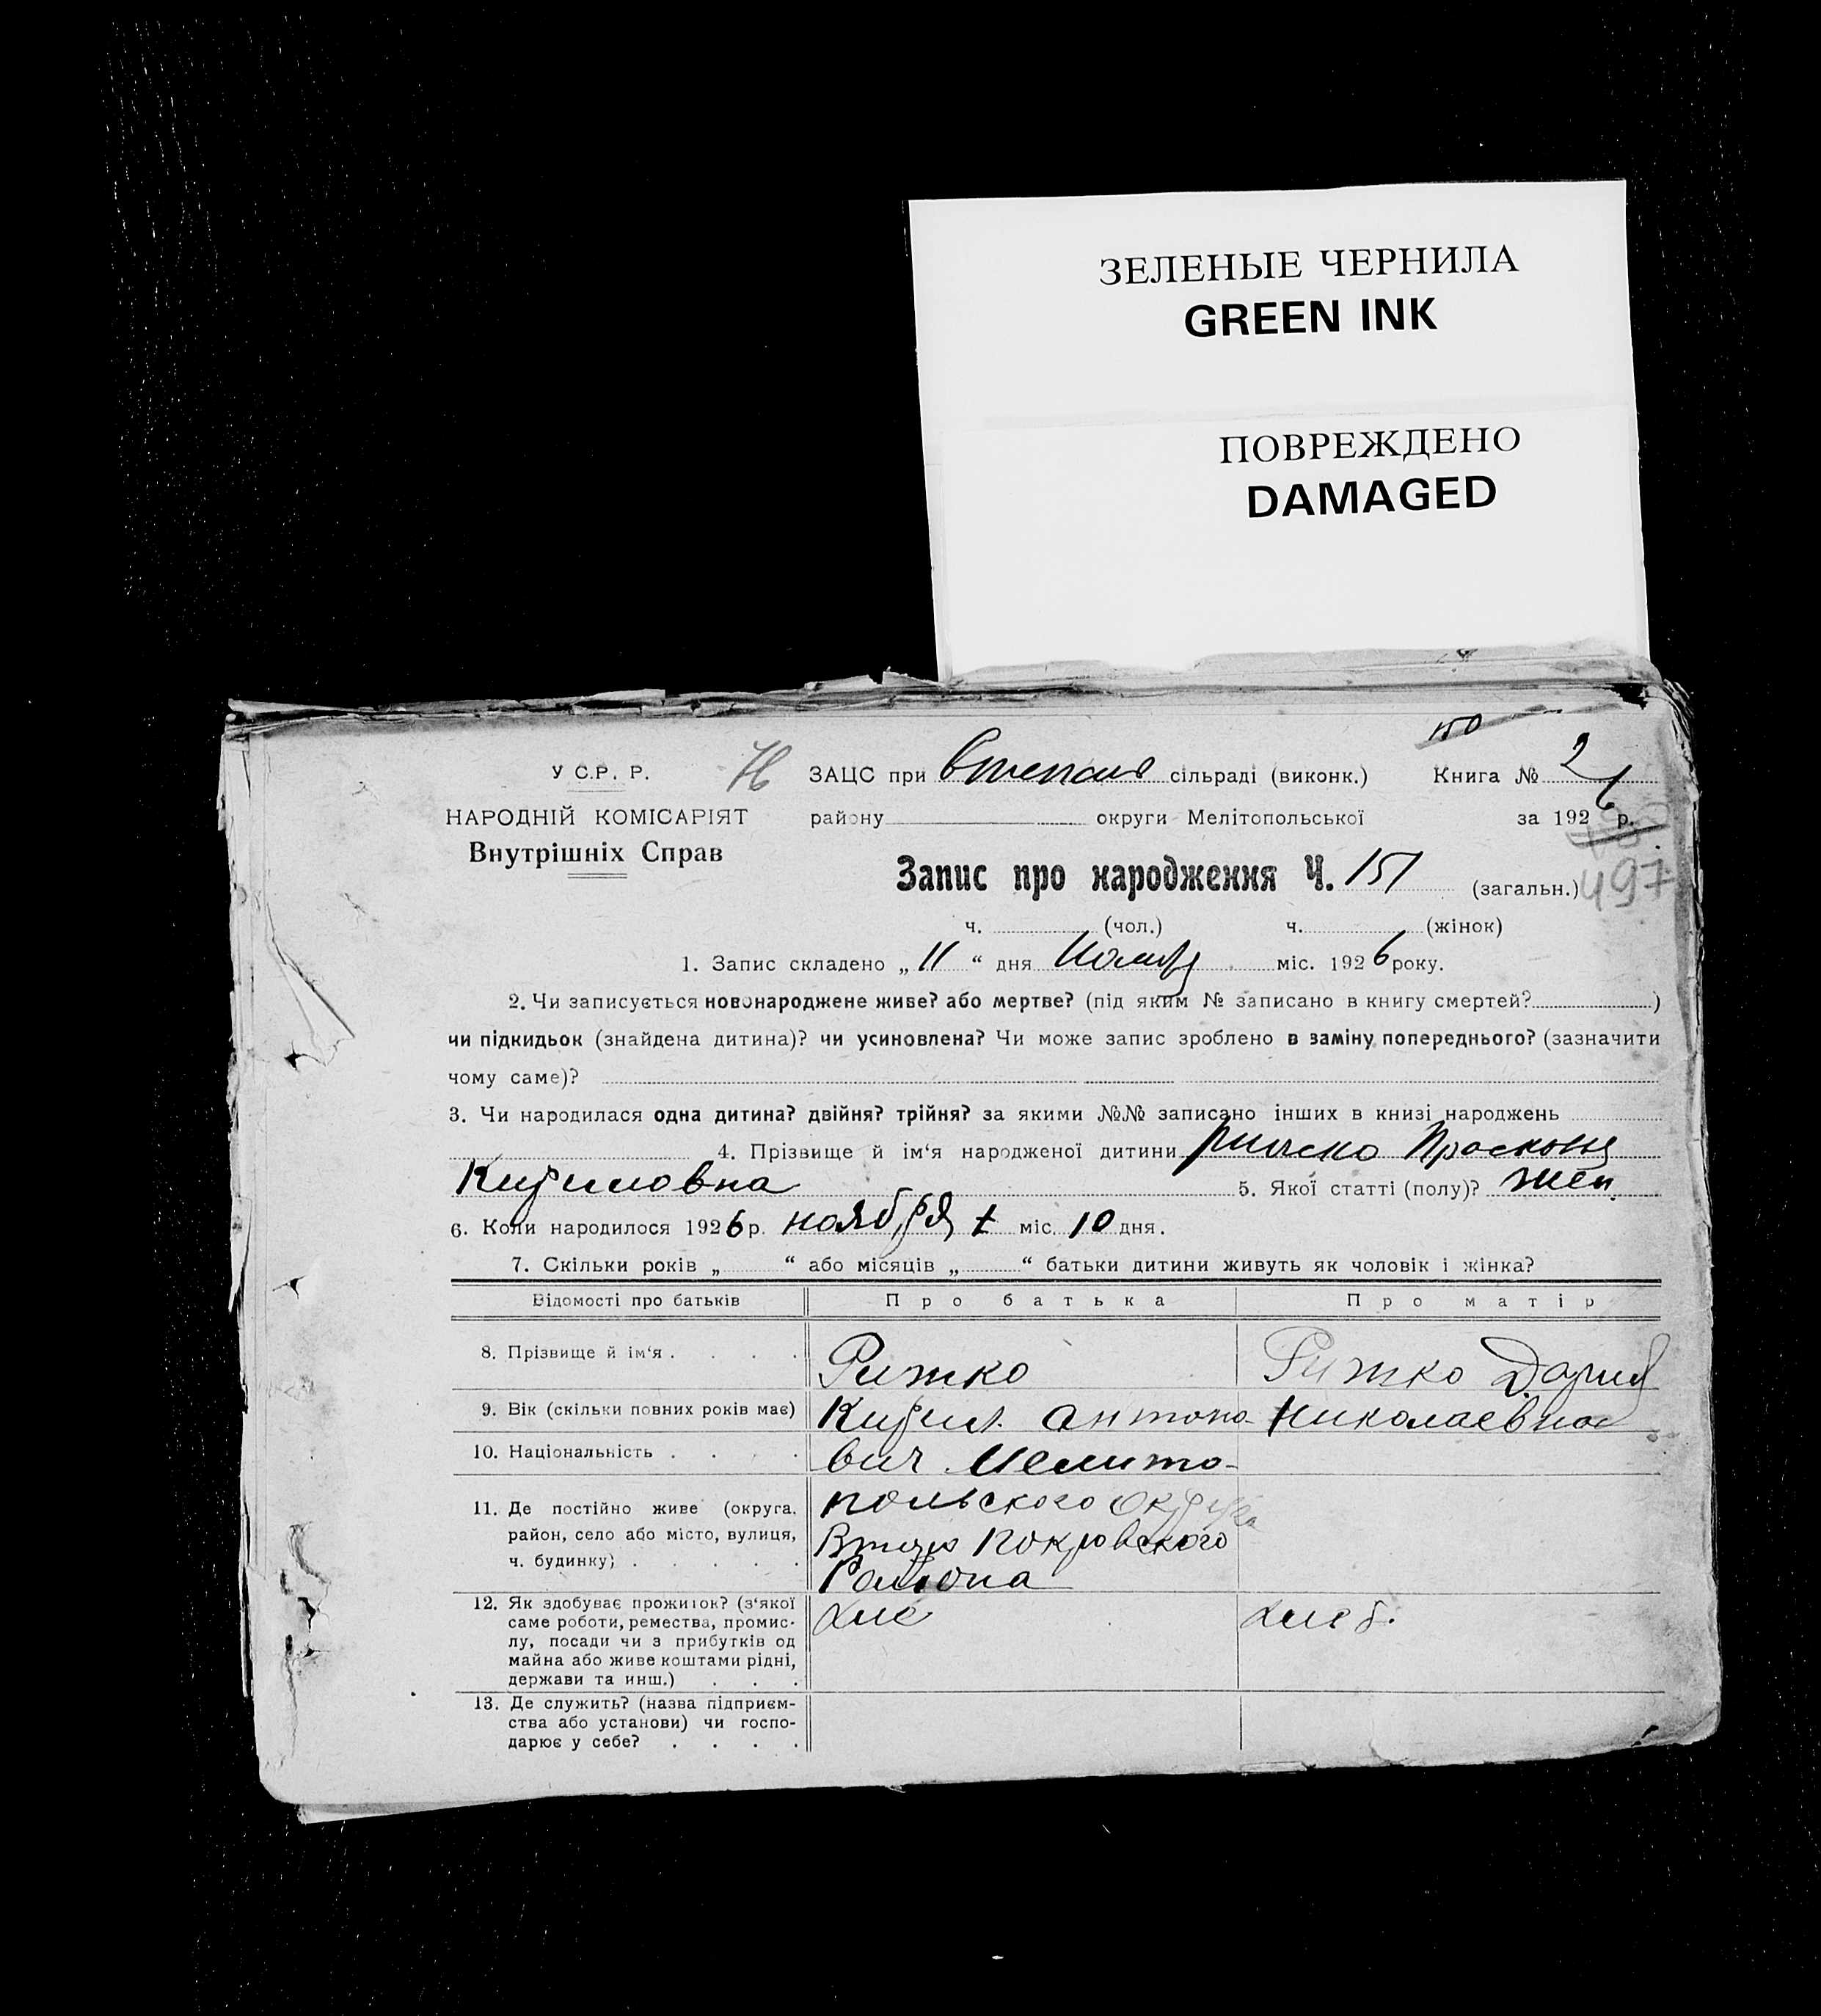 ЗЕЛЕНЫЕ ЧЕРНИЛА
GREEN INK
ПОВРЕЖДЕНО
DAMAGED
150
У С.Р. Р. ЗАЦС при сільраді (виконк.) Книга № 2
НАРОДНІЙ КОМІСАРІЯТ району округи Мелітопольської за 1926 р.
Внутрішніх Справ
497
Запис про народження Ч. 151 (загальн.)
ч. (чол.) ч. (жінок)
1. Запис складено „ 11 “ дня міс. 1926 року.
2. Чи записується новонароджене живе? або мертве? (під яким № записано в книгу смертей? )
чи підкидьок (знайдена дитина)? чи усиновлена? Чи може запис зроблено в заміну попереднього? (зазначити
чому саме)?
3. Чи народилася одна дитина? двійня? трійня? за якими №№ записано інших в книзі народжень
4. Прізвище й ім‘я народженої дитини Рижко Прасковя
Кириловна 5. Якої статті (полу)? жен.
6. Коли народилося 1926 р. ноября міс. 10 дня.
7. Скільки років „ “ або місяців „ “ батьки дитини живуть як чоловік і жінка?
Відомості про батьків Про батька Про матір
8. Прізвище й ім‘я . . . . Рижко Рижко Дария
9. Вік (скільки повних років має) Кирил Антоно- Николаевна
10. Національність . . . . вич Мелито-
11. Де постійно живе (округа, польского округа
район, село або місто, вулиця, Покровского
ч. будинку) . . . . . Района
12. Як здобуває прожиток? (з‘якої хле хлеб.
саме роботи, ремества, промис-
лу, посади чи з прибутків од
майна або живе коштами рідні,
держави та инш.) . . .
13. Де служить? (назва підприєм-
ства або установи) чи госпо-
дарює у себе? . . . .